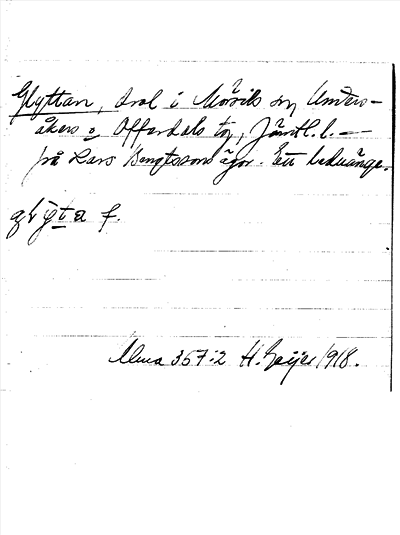 Glyttan, i Mörsils sn, Unders-
åkers o Offerdals tg, Jämtl. l. —
på Lars Bengtssons ägor. Ett
f.
Ulma 357:2 H. Geijer 1918.